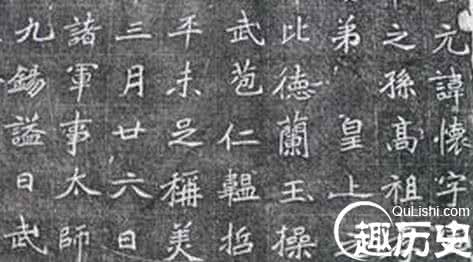 元諱懷字
之孫高祖
弟皇上
比德蘭玉操
武苞仁韞哲
平未足稱美
三月廿六日
諸軍事太師
九錫謚曰武
QuLishi.com
趣历史